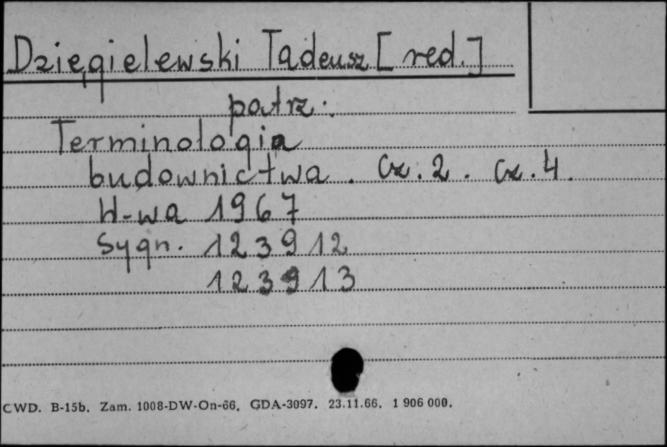 Dzięgielewski Tadeusz [red.]
patrz:
Terminologia
budownictwa. Cz. 2. Cz. 4.
W-wa 1967
Sygn. 123912
123913
CWD. B-15b. Zam. 1008-DW-On-66. GDA-3097. 23.11.66. 1 906 000.